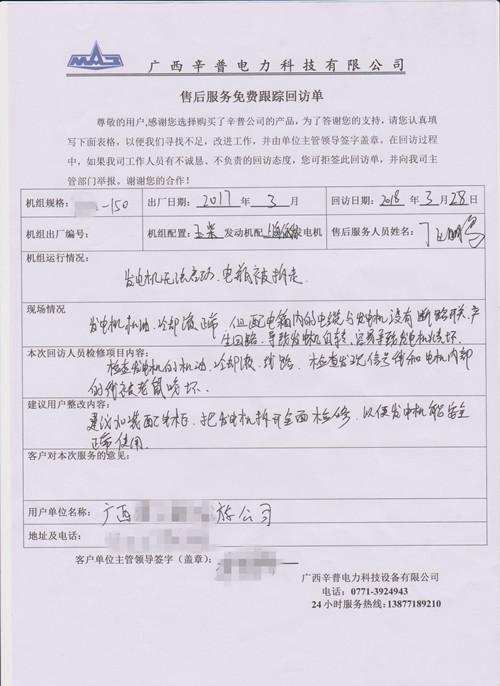 MAJ
广西辛普电力科技有限公司
售后服务免费跟踪回访单
尊敬的用户,感谢您选择购买了辛普公司的产品，为了答谢您的支持，请您认真填
写下面表格，以便我们寻找不足，改进工作，并由单位主管领导签字盖章。在回访过程
中，如果我司工作人员有不诚恳、不负责的回访态度，您可拒签此回访单，并向我司主
管部门举报。谢谢您的合作！
机组规格: -150 出厂日期: 2017 年 3 月 回访日期: 2018 年 3 月 28 日
机组出厂编号: 机组配置: 玉柴 发动机配 上海 发电机 售后服务人员姓名: 丁
机组运行情况:
发电机无法启动、电瓶被拆走
现场情况
发电机机油、冷却液正常，但配电箱内的电缆与发电机没有断路开关，产
生回路，导致发电机自转，容易导致发电机烧坏.
本次回访人员检修项目内容:
检查发电机的机油、冷却液、线路，检查发现信号线和电机内部
的线被老鼠咬坏.
建议用户整改内容:
建议加装配电柜，把发电机拆开全面检修，以便发电机能安全
正常使用.
客户对本次服务的意见:
用户单位名称: 广西 公司
地址及电话:
客户单位主管领导签字（盖章）:
广西辛普电力科技设备有限公司
电话：0771-3924943
24小时服务热线:13877189210